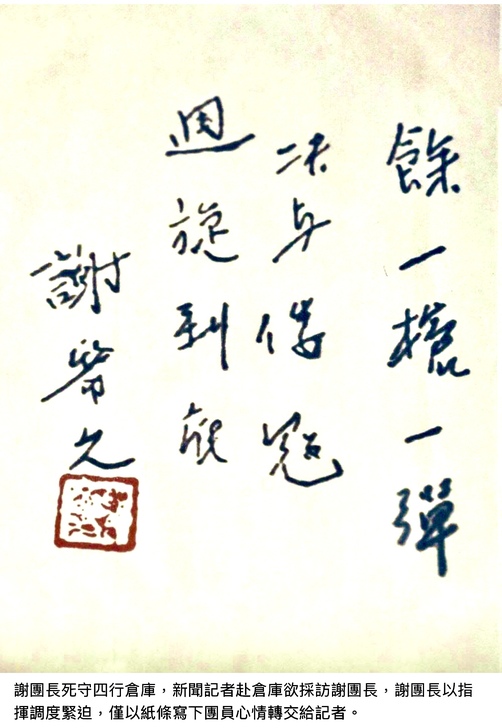 餘一槍一彈
决与倭寇
週旋到底
謝晋元
謝團長死守四行倉庫，新聞記者赴倉庫欲採訪謝團長，謝團長以指
揮調度緊迫，僅以紙條寫下團員心情轉交給記者。